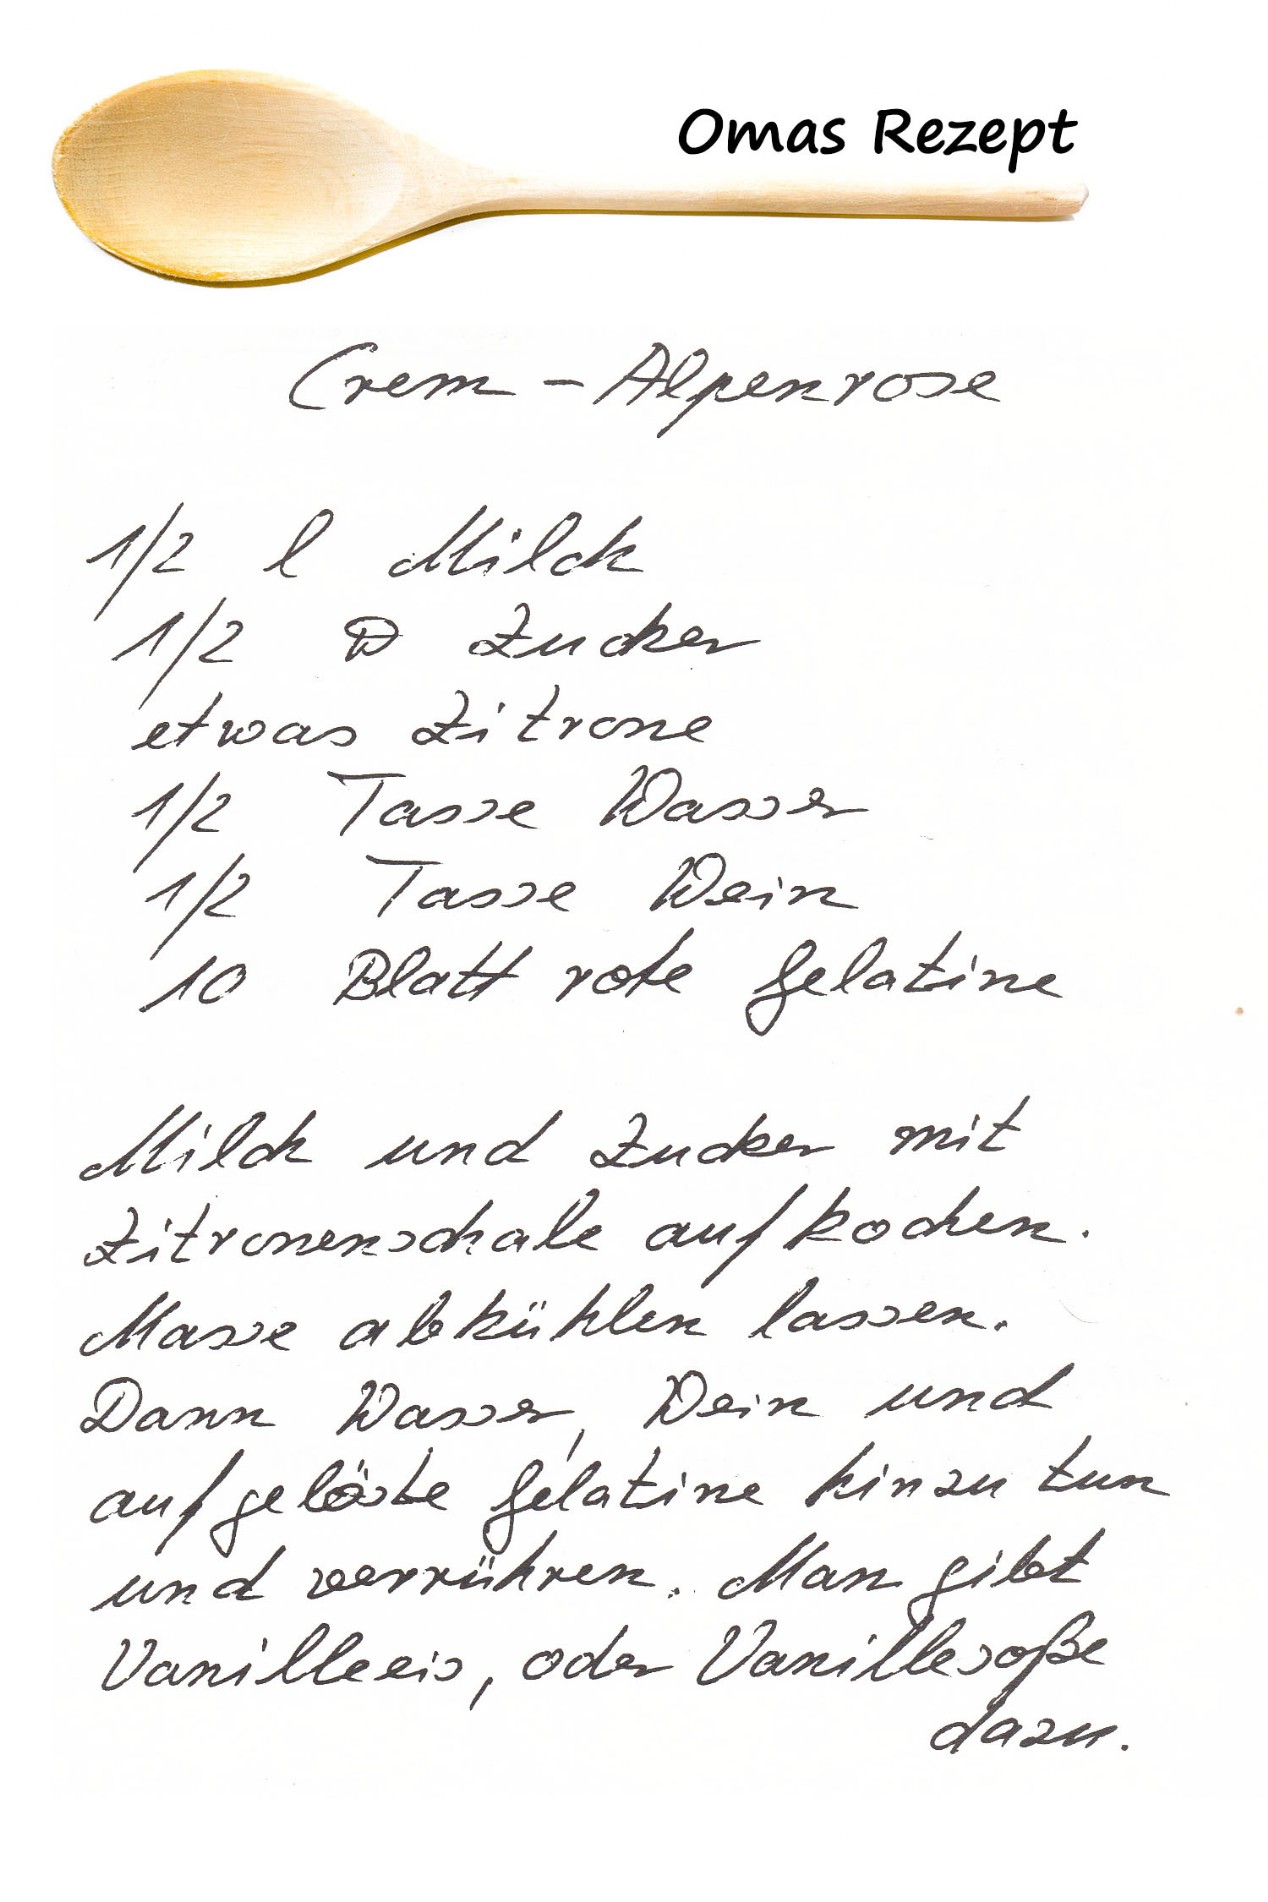 Omas Rezept
Crem - Alpenrose
1/2 l Milch
1/2 ℔ Zucker
etwas Zitrone
1/2 Tasse Wasser
1/2 Tasse Wein
10 Blatt rote Gelatine
Milch und Zucker mit
Zitronenschale aufkochen.
Masse abkühlen lassen.
Dann Wasser, Wein und
aufgelöste Gelatine hinzu tun
und verrühren. Man gibt
Vanilleeis, oder Vanillesoße
dazu.